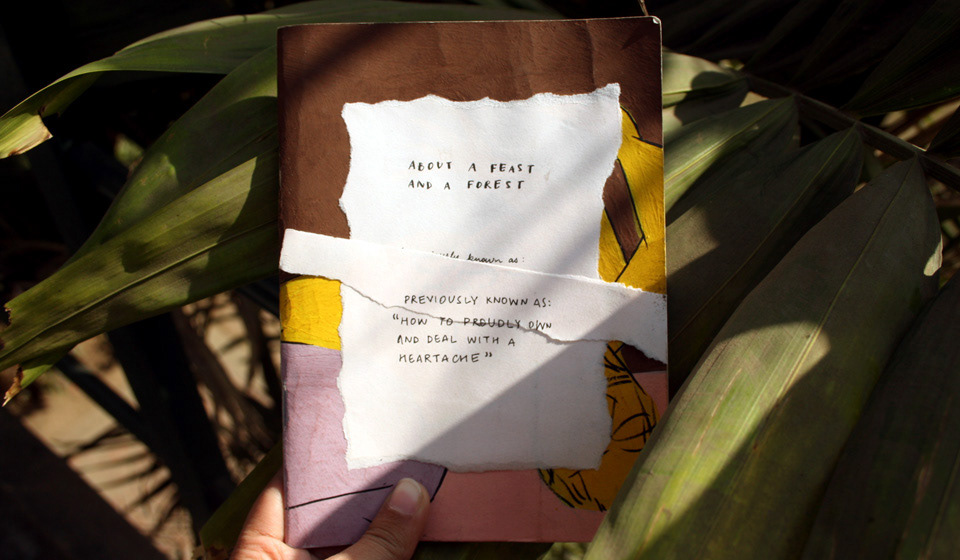 ABOUT A FEAST
AND A FOREST
known as:
PREVIOUSLY KNOWN AS:
"HOW TO PROUDLY OWN
AND DEAL WITH A
HEARTACHE"